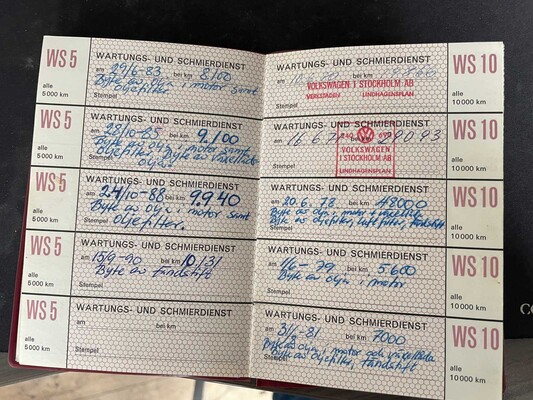 WS 5
alle
5 000 km
WARTUNGS- UND SCHMIERDIENST
am 29/6-83 bei km 8100
Byte av olja i motor samt
Stempel oljefilter.
WS 5
alle
5 000 km
WARTUNGS- UND SCHMIERDIENST
am 28/10-85 bei km 9.100
Byte av olja i motor samt
oljefilter, Byte av växellåds
Stempel olja
WS 5
alle
5 000 km
WARTUNGS- UND SCHMIERDIENST
am 24/10-88 bei km 9.940
Byte av olja i motor samt
Stempel oljefilter.
WS 5
alle
5 000 km
WARTUNGS- UND SCHMIERDIENST
am 15/9-90 bei km 10.131
Byte av tändstift
Stempel
WS 5
alle
5 000 km
WARTUNGS- UND SCHMIERDIENST
am bei km
Stempel
WARTUNGS- UND SCHMIERDIENST
am bei km
VOLKSWAGEN I STOCKHOLM AB
VERKSTADEN LINDHAGENSPLAN
Stempel
WS 10
alle
10 000 km
WARTUNGS- UND SCHMIERDIENST
am 16.6.71 bei km 9093
VOLKSWAGEN
I STOCKHOLM AB
LINDHAGENSPLAN
Stempel
WS 10
alle
10 000 km
WARTUNGS- UND SCHMIERDIENST
am 20.6.78 bei km 48000
Byte av olja i motor
Byte av oljefilter, luftfilter, tändstift
Stempel
WS 10
alle
10 000 km
WARTUNGS- UND SCHMIERDIENST
am 1/6 - 79 bei km 5600
Byte av olja i motor
Stempel
WS 10
alle
10 000 km
WARTUNGS- UND SCHMIERDIENST
am 31/1-81 bei km 7000
Byte av olja i motor och växellåda
Byte av oljefilter, tändstift
Stempel
WS 10
alle
10 000 km
CO